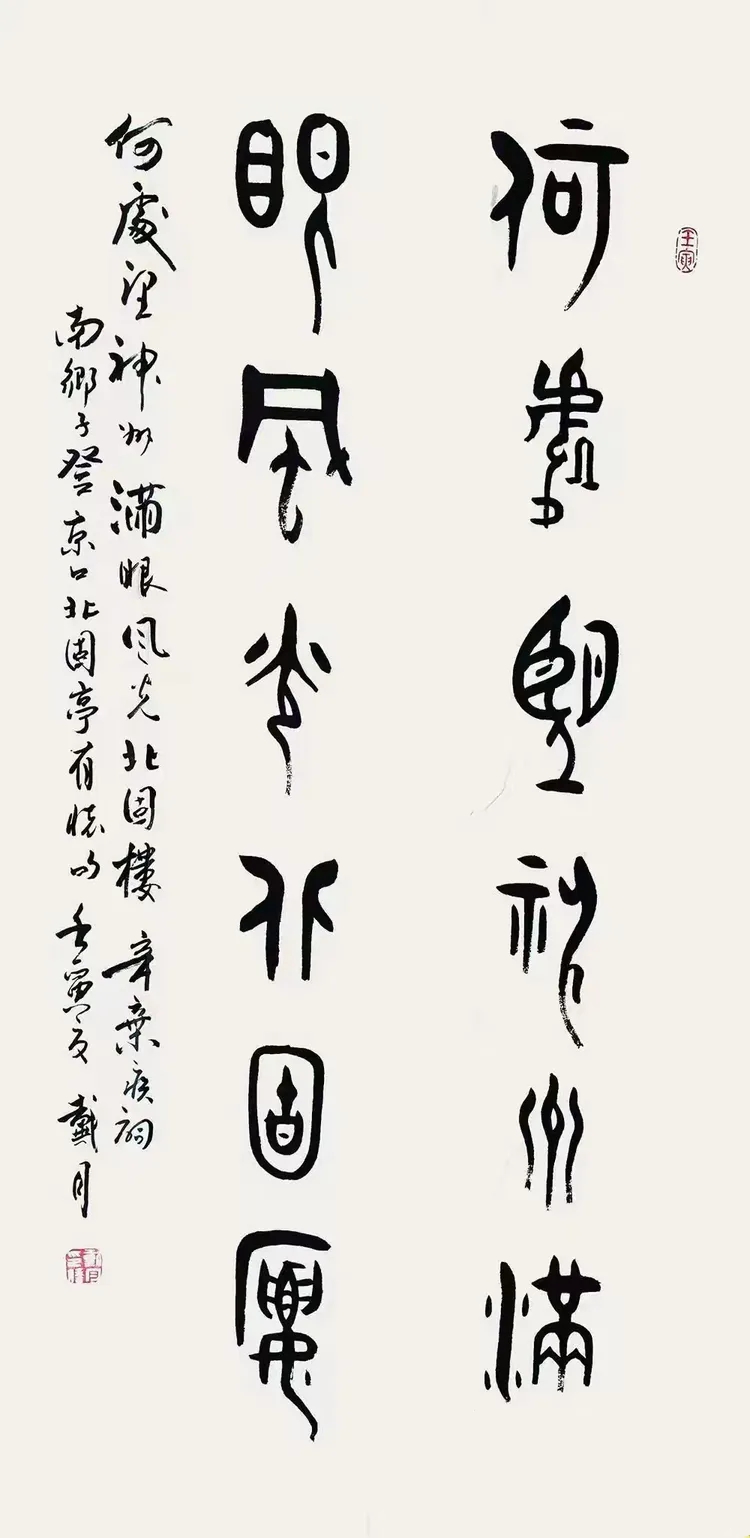 何處望神州滿
眼風光北固廔
何處望神州滿眼風光北固樓 辛棄疾詞
南鄉子登京口北固亭有懷 壬寅夏 戴月
壬寅